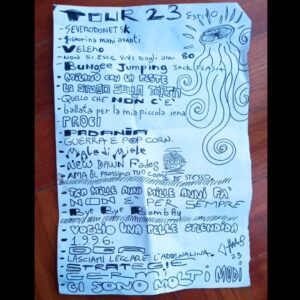 TOUR 23
- SEVERODONETSK
- Signorina mani avanti
- Veleno
- NON SI ESCE VIVI DAGLI ANNI 80
- Bungee Jumping
- MILANO CON LA PESTE
- LA STRADA SULLA TESTA
- QUELLO CHE NON C'E'
- ballata per la mia piccola iena
- PROCI
- PADANIA
- GUERRA E POP CORN.
- Miglia di Miele
- NEW DAWN Fades
- AMA IL PROSSIMO TUO COME TE STESSO
TRA MILLE ANNI MILLE ANNI FA'
NON E' PER SEMPRE
Bye Bye Bombay
VOGLIO UNA PELLE SPLENDIDA
1.9.9.6.
DEA
LASCIAMI LECCARE L'ADRENALINA
STRATEGIE
CI SONO MOLTI MODI